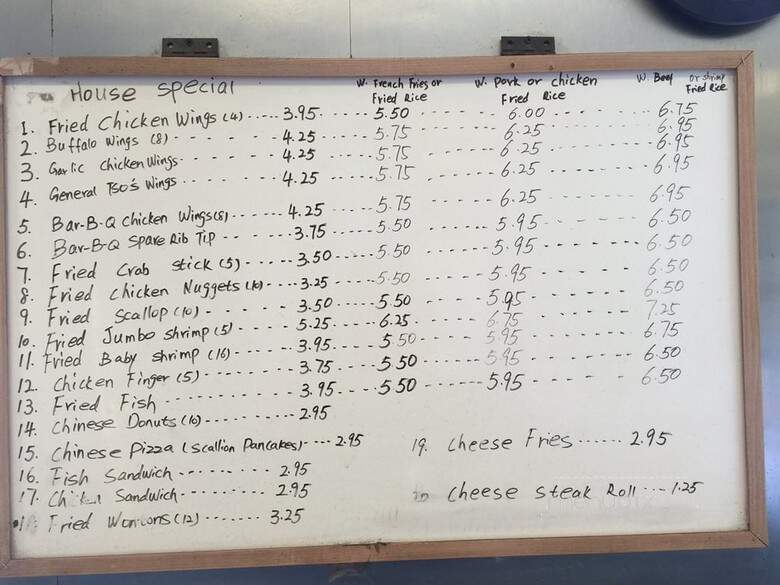 House Special W. French Fries or Fried Rice W. Pork or chicken Fried Rice W. Beef or shrimp Fried Rice
1. Fried Chicken Wings (4) ---- 3.95 ----- 5.50 ------ 6.00 ------ 6.75
2. Buffalo Wings (8) ------ 4.25 5.75 ------ 6.25 ------ 6.95
3. Garlic chicken Wings ------ 4.25 5.75 ------ 6.25 ------ 6.95
4. General Tso's Wings ------ 4.25 5.75 ------ 6.25 ------ 6.95
5. Bar-B-Q Chicken Wings (8) ------ 4.25 5.75 ------ 6.25 ------ 6.95
6. Bar-B-Q Spare Rib Tip ---- 3.75 ------ 5.50 ------ 5.95 ------ 6.50
7. Fried Crab Stick (5) ------ 3.50 ------ 5.50 ------ 5.95 ------ 6.50
8. Fried Chicken Nuggets (10) ---- 3.25 ------ 5.50 ------ 5.95 ------ 6.50
9. Fried Scallop (10) ------ 3.50 ------ 5.50 ------ 5.95 ------ 6.50
10. Fried Jumbo Shrimp (5) ------ 5.25 ------ 6.25 ------ 6.75 ------ 7.25
11. Fried Baby Shrimp (16) ------ 3.95 ------ 5.50 ------ 5.95 ------ 6.75
12. Chicken Finger (5) ------ 3.75 ------ 5.50 ------ 5.95 ------ 6.50
13. Fried Fish ------ 3.95 ---- 5.50 ------ 5.95 ------ 6.50
14. Chinese Donuts (10) ------ 2.95
15. Chinese Pizza (Scallion Pancakes) ---- 2.95
16. Fish Sandwich ------ 2.95
17. Chicken Sandwich ------ 2.95
18. Fried Wontons (12) ------ 3.25
19. Cheese Fries ------ 2.95
20. Cheese Steak Roll ---- 1.25